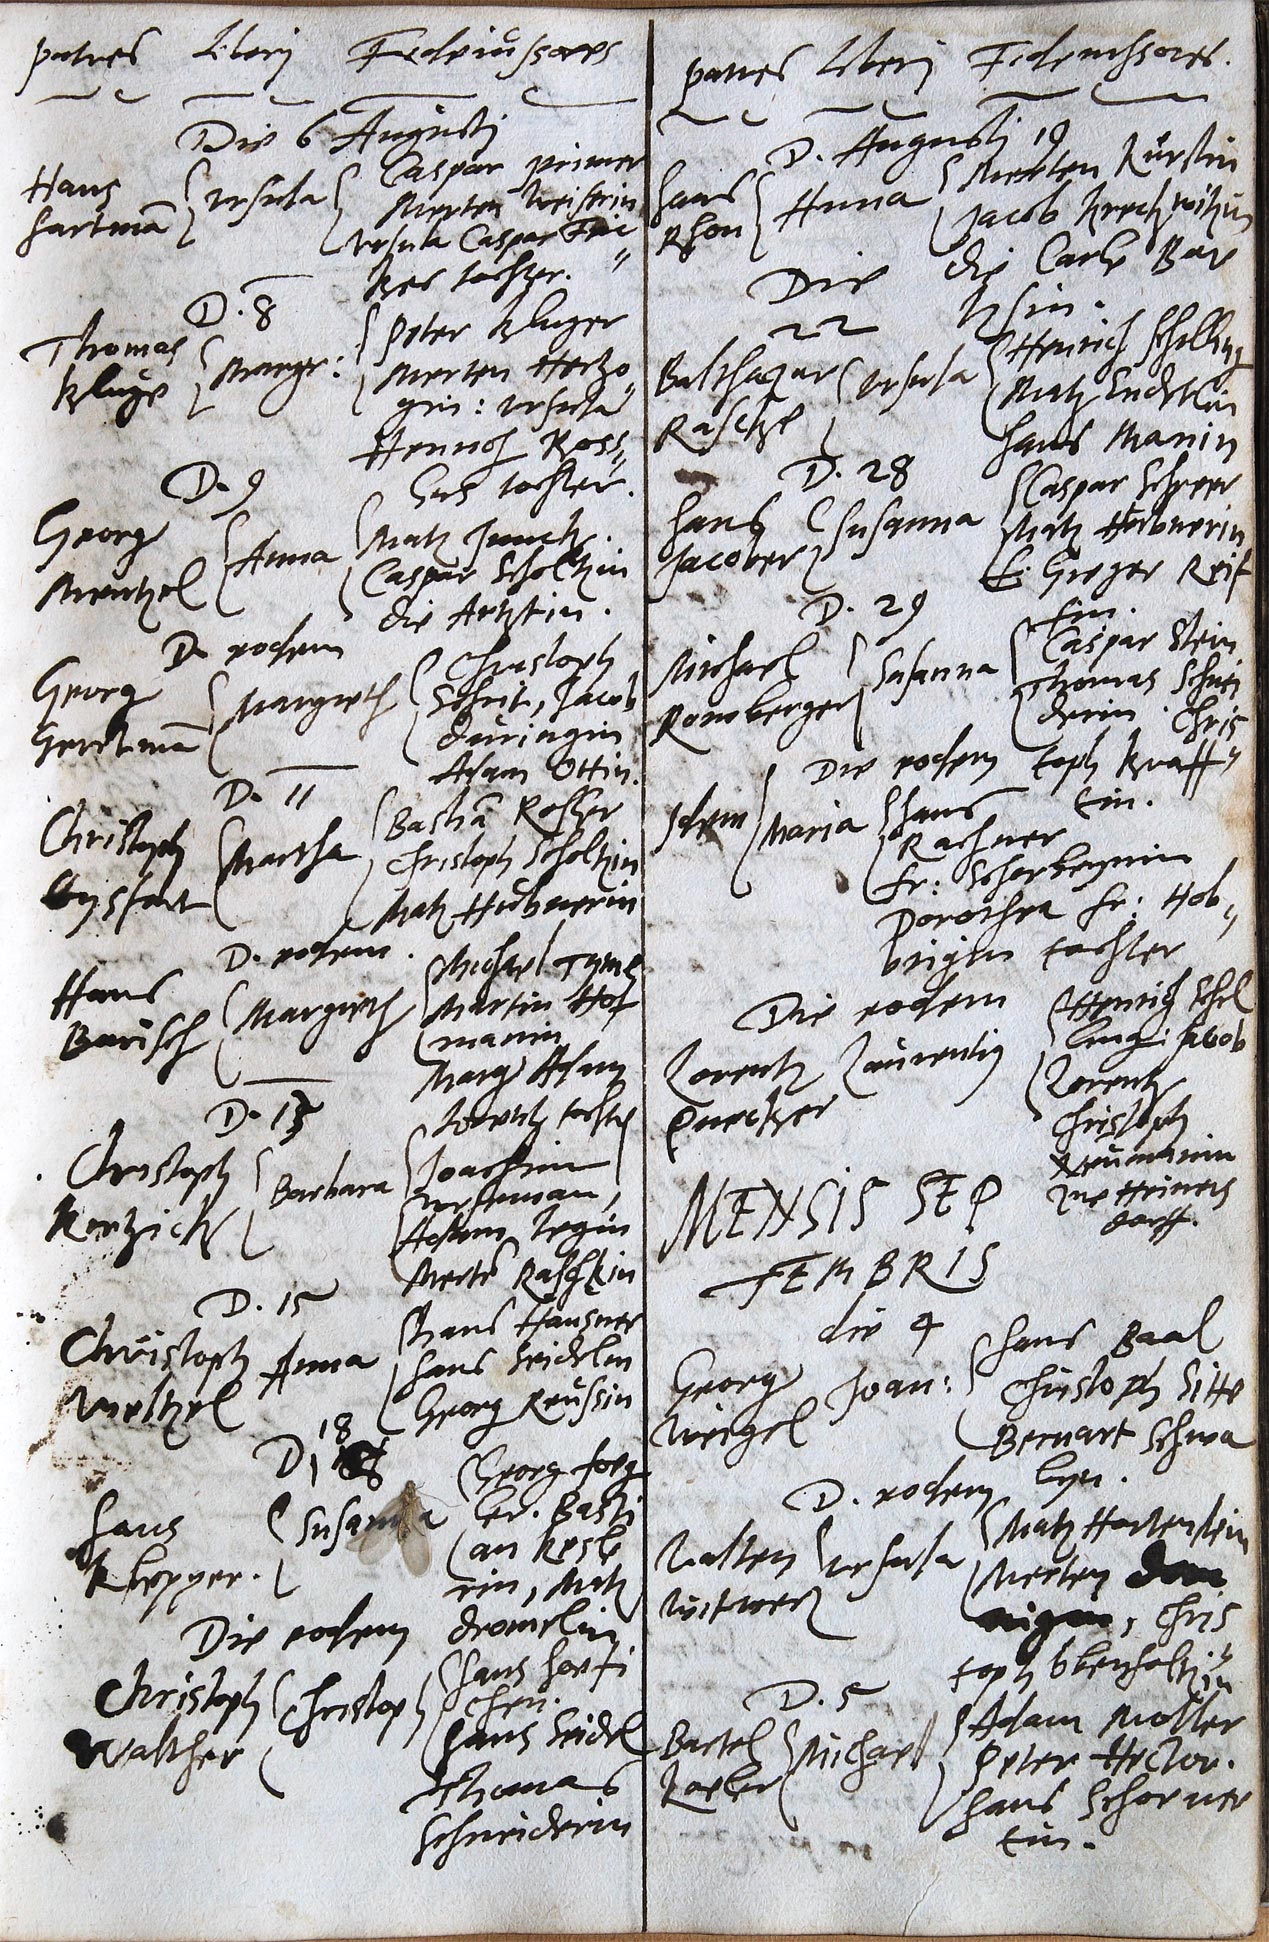 patres Liberj Fideiussores
Die 6 Augustj
Hans
Hartmā
Ursula
Caspar primer
Merten Weisrin
Ursula Caspar
kes tochter.
D. 8
Thomas
kluge
Margr:
Peter kluger
Merten Hertzo
gin: Ursula
Henrich Ross
tochter.
D. 9
Georg
Mentzel
Anna
Matz Junck.
Caspar Scholtzin
die Artztin.
D. eodem
Georg
Gerstmā
Margreth
Christoph
Schrit, Jacob
düringin
Adam Ottin.
D. 11
Christoph
Martha
Bastiā Rosler
Christoph Scholtzin
Matz Hübnerin
D. eodem.
Hans
Barisch
Margreth
Michael Tyml
Martin Hof
manin
Marg Adam
tochter
D. 13
Christoph
Kertzick
Barbara
Joachim
Adam Tegin
Mertē Raschkin
D. 15
Christoph
Weltzel
Anna
Hans Hausner
Hans Seidelin
Georg Reussin
D. 18
Hans
Klepper.
Susanna
Georg forg
ler. Basti
an kesle
rin, Matz
dromelin
Die eodem
Christoph
Walther
Christoph
Hans horti
chen.
Hans Seidel
Thomas
Schneiderin
patres Liberj Fideiussores.
D. Augustj 19
Hans
Rhon
Anna
Merten Kürstin
Jacob kretzwitzin
die Carle Bar
tzsin.
Die
22
Balthazar
Raschke
Ursula
Henrich Schilling
Matz Endtlin
Hans Manin
D. 28
Hans
Jacober
Susanna
Caspar Scherer
Matz Heibnerin
F. Greger Reif
tin.
D. 29
Michael
Romberger
Susanna
Caspar Stein
Thomas Schnei
derin. Chris
toph kraff
tin.
Die eodem
Idem
Maria
Hans
Rachner
Fr: Scherbeynin
Dorothea Fr: Hel
brigin tochter
Die eodem
Lorentz
Quecker
Laurentig
Henrich Schel
ling. Jacob
Lorentz
Christoph
Neumanin
zue Heiners
dorff.
MENSIS SEP
TEMBRIS
die 4
Georg
Weigel
Joan:
Hans Baal
Christoph Sitte
Bernart Schwa
ben.
D. eodem
Valten
Witwer
Ursula
Matz Hortenstein
Merten
, Chris
toph
D. 5
Bartel
Michael
Adam Moller
Peter Hector.
Hans Schorner
tin.